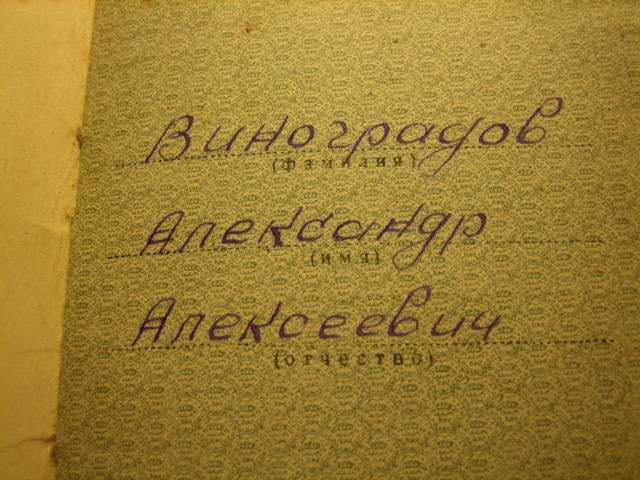 Виноградов
(фамилия)
Александр
(имя)
Алексеевич
(отчество)